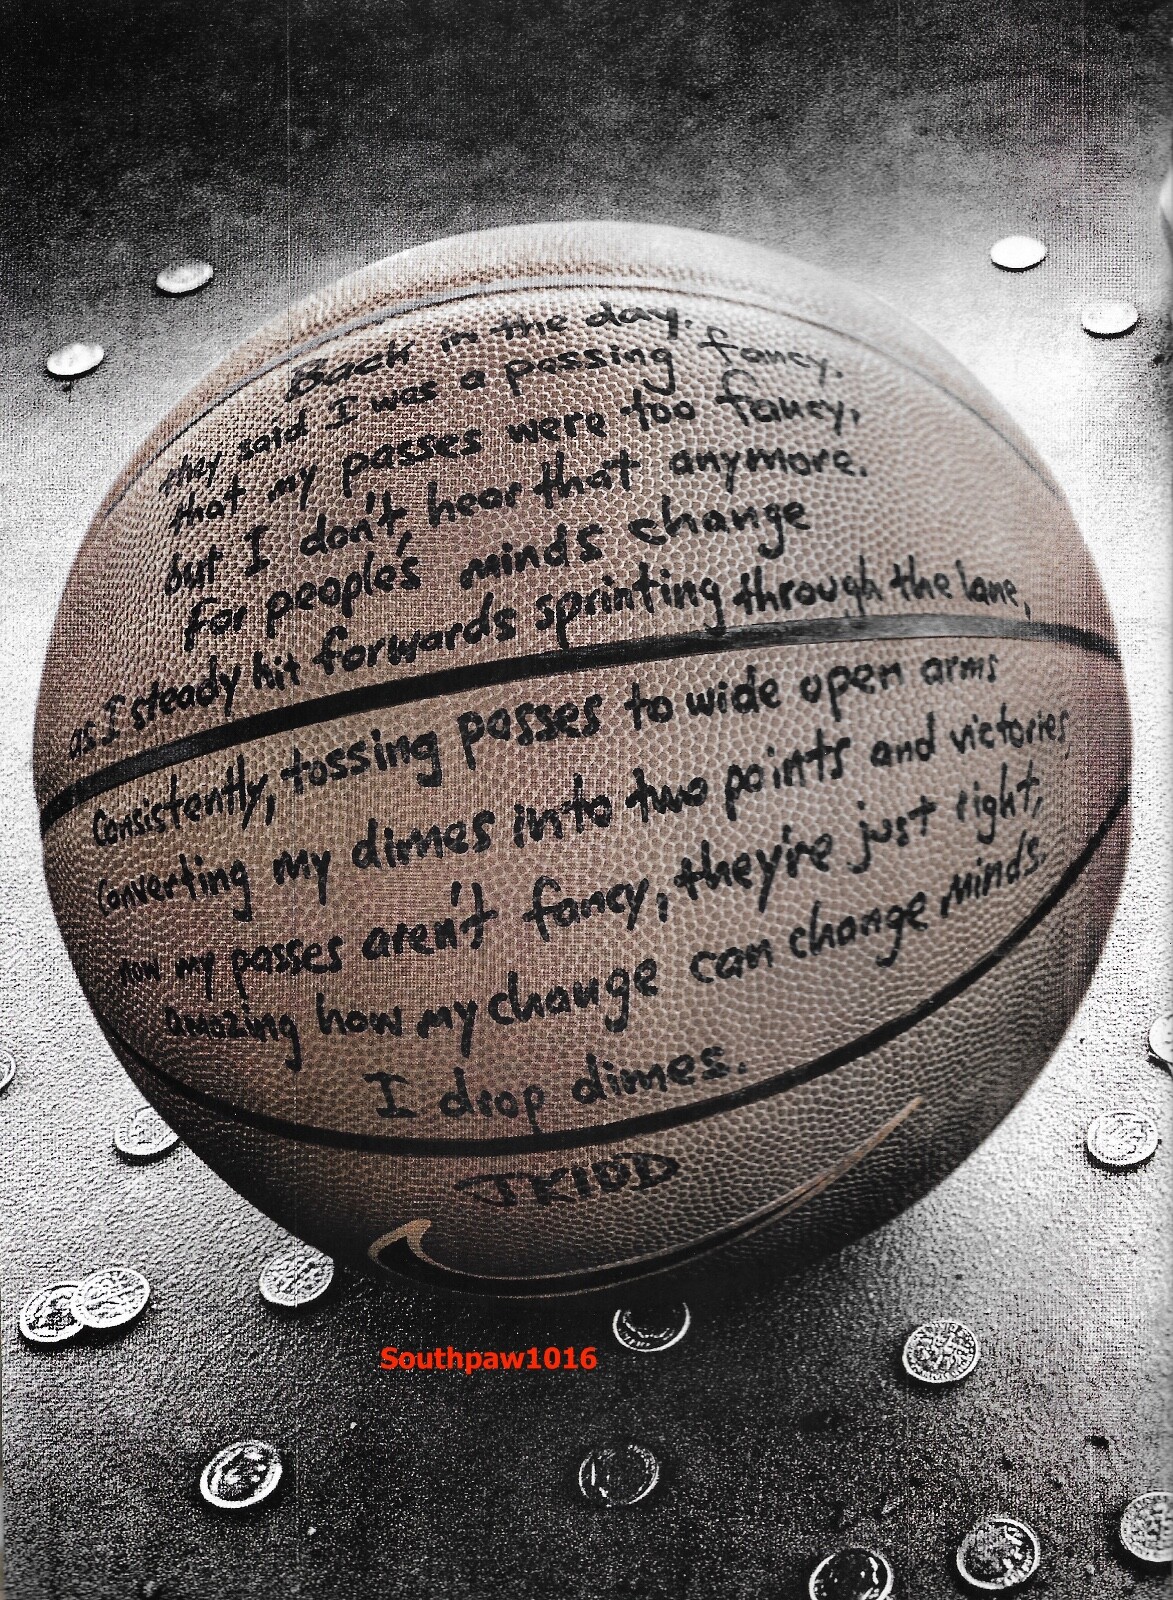 Back in the day,
they said I was a passing fancy.
that my passes were too fancy,
but I don't hear that anymore.
For people's minds change
as I steady hit forwards sprinting through the lane,
Consistently, tossing passes to wide open arms
Converting my dimes into two points and victories,
now my passes aren't fancy, they're just right,
amazing how my change can change minds.
I drop dimes.
JKIDD
Southpaw1016